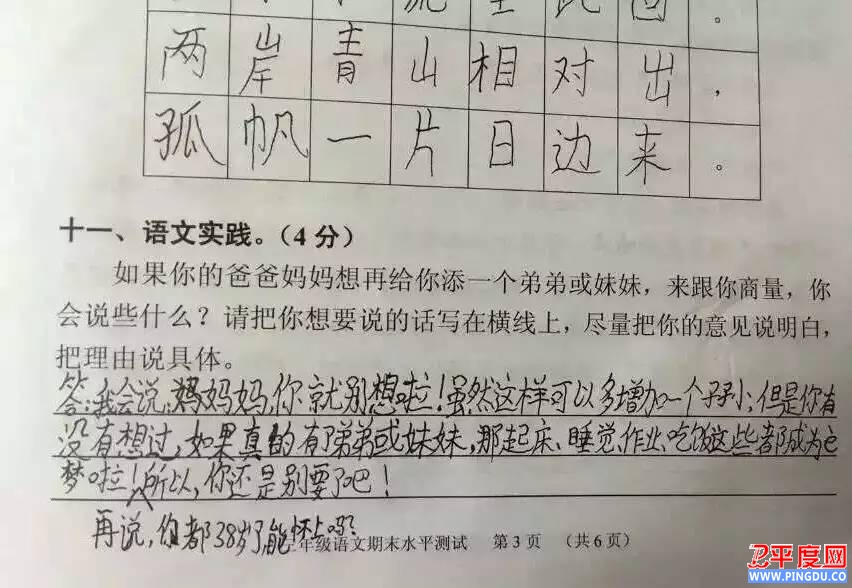 两岸青山相对出，
孤帆一片日边来。
十一、语文实践。（4 分）
如果你的爸爸妈妈想再给你添一个弟弟或妹妹，来跟你商量，你
会说些什么？请把你想要说的话写在横线上，尽量把你的意见说明白，
把理由说具体。
答：我会说：妈妈妈，你就别想啦！虽然这样可以多增加一个；但是你有
没有想过，如果真的有弟弟或妹妹，那起床、睡觉、作业、吃饭这些都成为
梦啦！所以，你还是别要了吧！
再说，你都38岁了，能怀上吗？
年级语文期末水平测试 第 3 页 （共 6 页）
平度网
WWW.PINGDU.CO